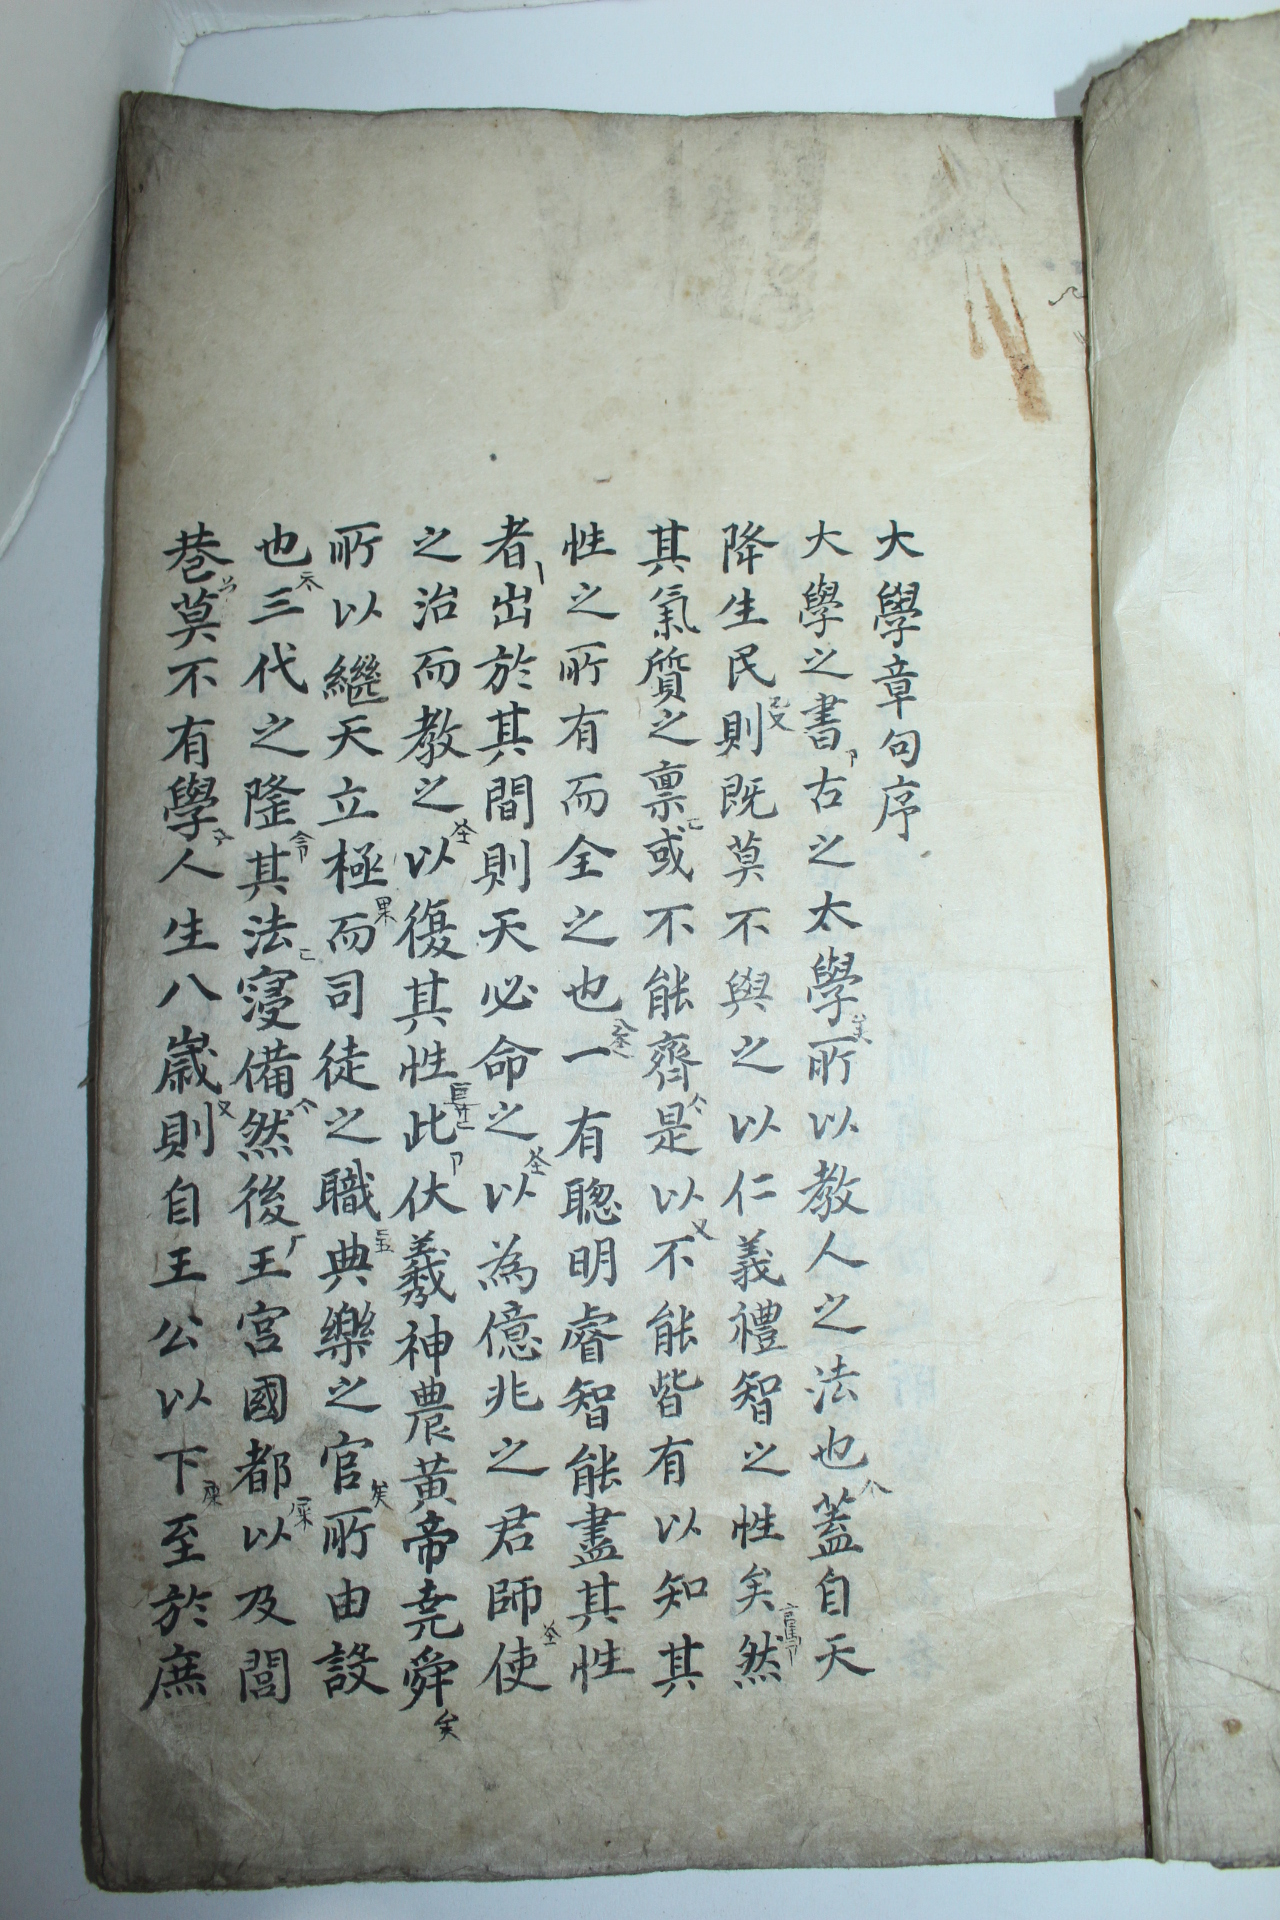 大學章句序
大學之書古之太學所以教人之法也蓋自天
降生民則既莫不與之以仁義禮智之性矣然
其氣質之禀或不能齊是以不能皆有以知其
性之所有而全之也一有聰明睿智能盡其性
者出於其間則天必命之以為億兆之君師使
之治而教之以復其性此伏羲神農黃帝堯舜
所以繼天立極而司徒之職典樂之官所由設
也三代之隆其法寖備然後王宮國都以及閭
巷莫不有學人生八歲則自王公以下至於庶